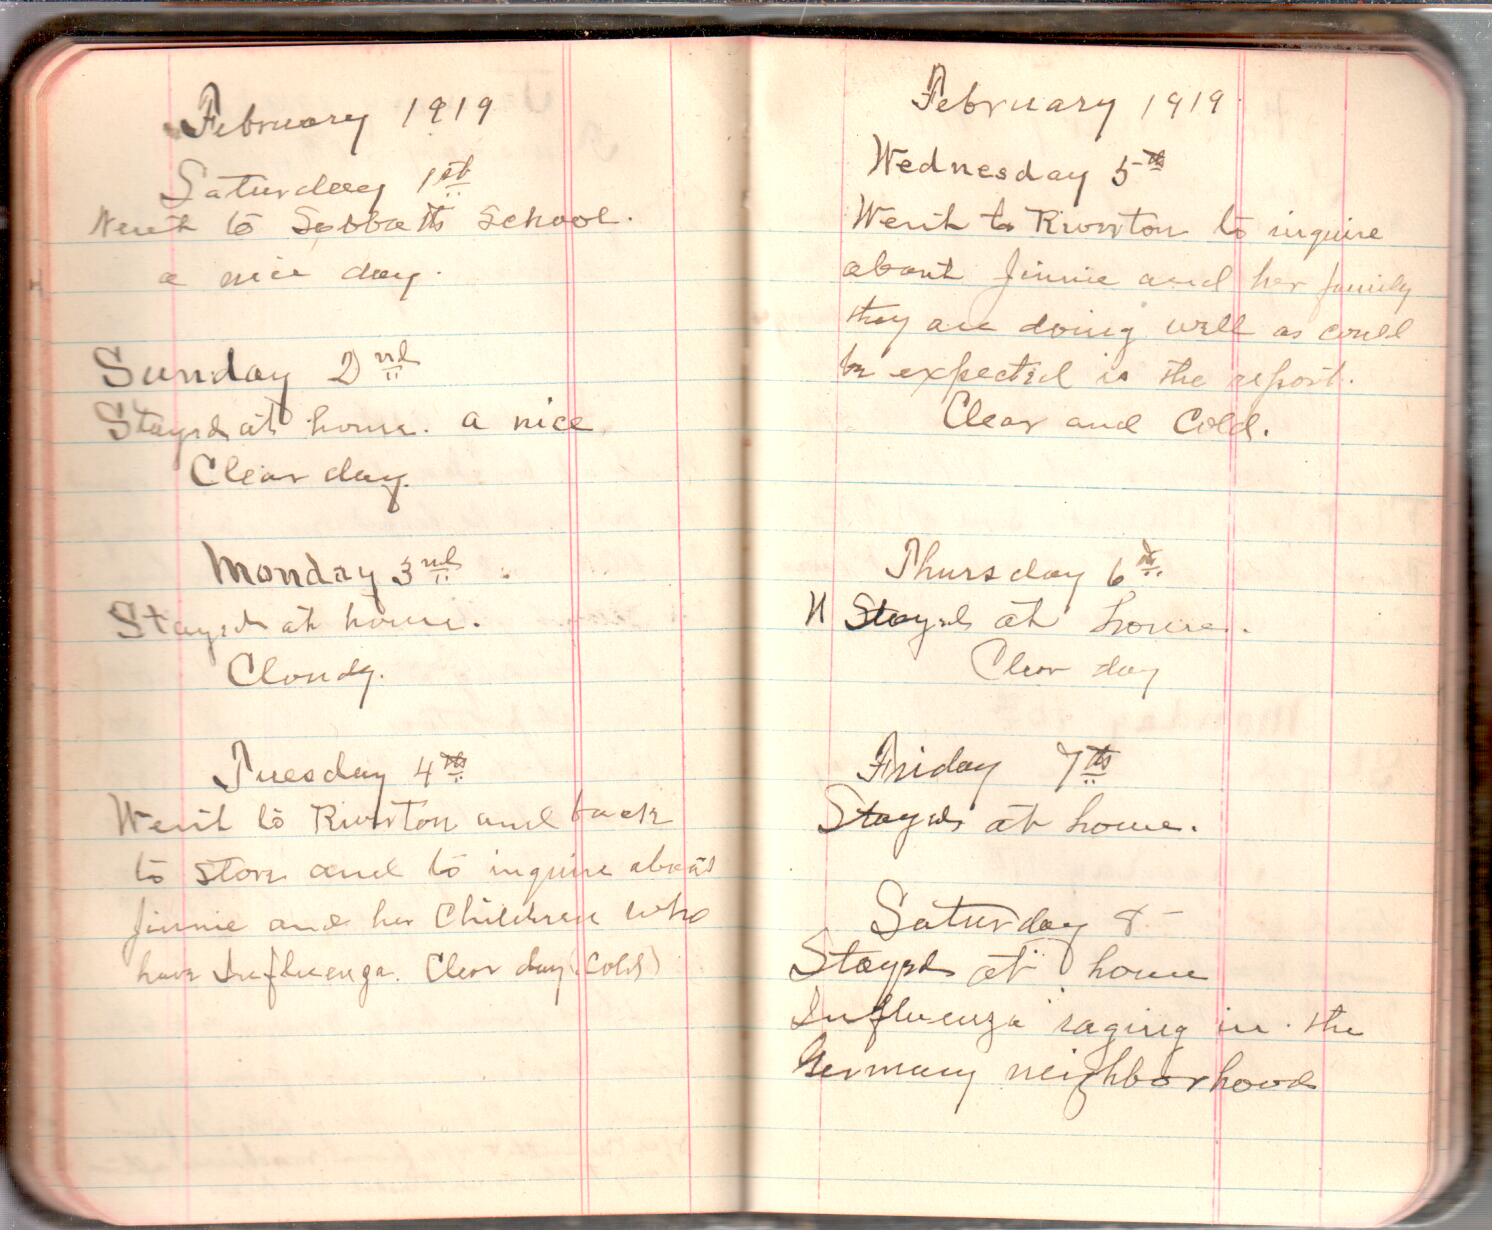 February 1919
Saturday 1st
Went to Sabbath School.
a nice day.
Sunday 2nd
Stayed at home. a nice
Clear day.
Monday 3rd
Stayed at home.
Cloudy.
Tuesday 4th
Went to Riverton and back
to store and to inquire about
Jinnie and her Children who
have Influenza. Clear day (Cold)
February 1919
Wednesday 5th
Went to Riverton to inquire
about Jinnie and her family
they are doing well as could
be expected is the report.
Clear and Cold.
Thursday 6th
Stayed at home.
Clear day
Friday 7th
Stayed at home.
Saturday 8
Stayed at home
Influenza raging in the
Germany neighborhood